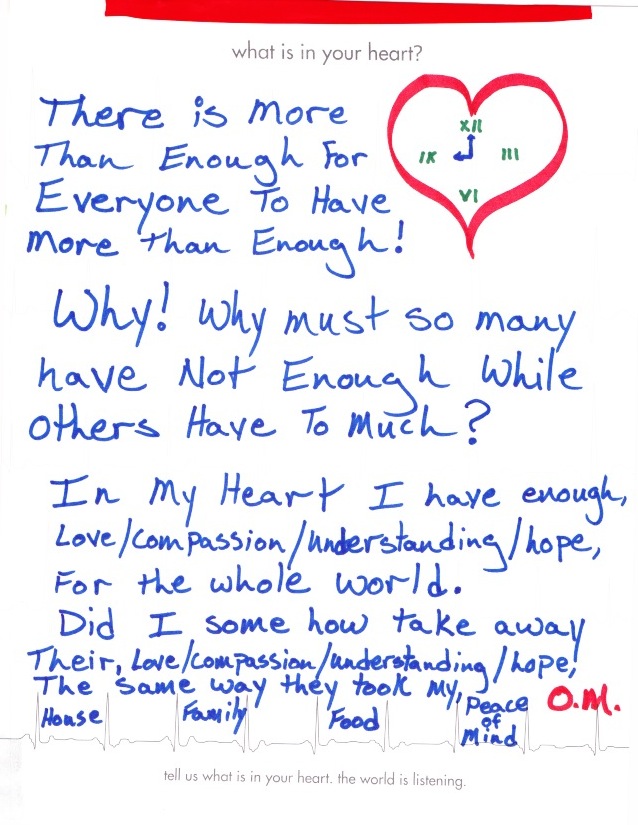 what is in your heart?
There is More
Than Enough For
Everyone To Have
More than Enough!
XII
IX III
VI
Why! Why must so many
have Not Enough While
others Have To Much?
In My Heart I have enough,
Love/compassion/understanding/hope,
For the whole world.
Did I some how take away
Their, Love/compassion/understanding/hope,
The same way they took My,
House Family Food Peace of Mind
O.M.
tell us what is in your heart. the world is listening.